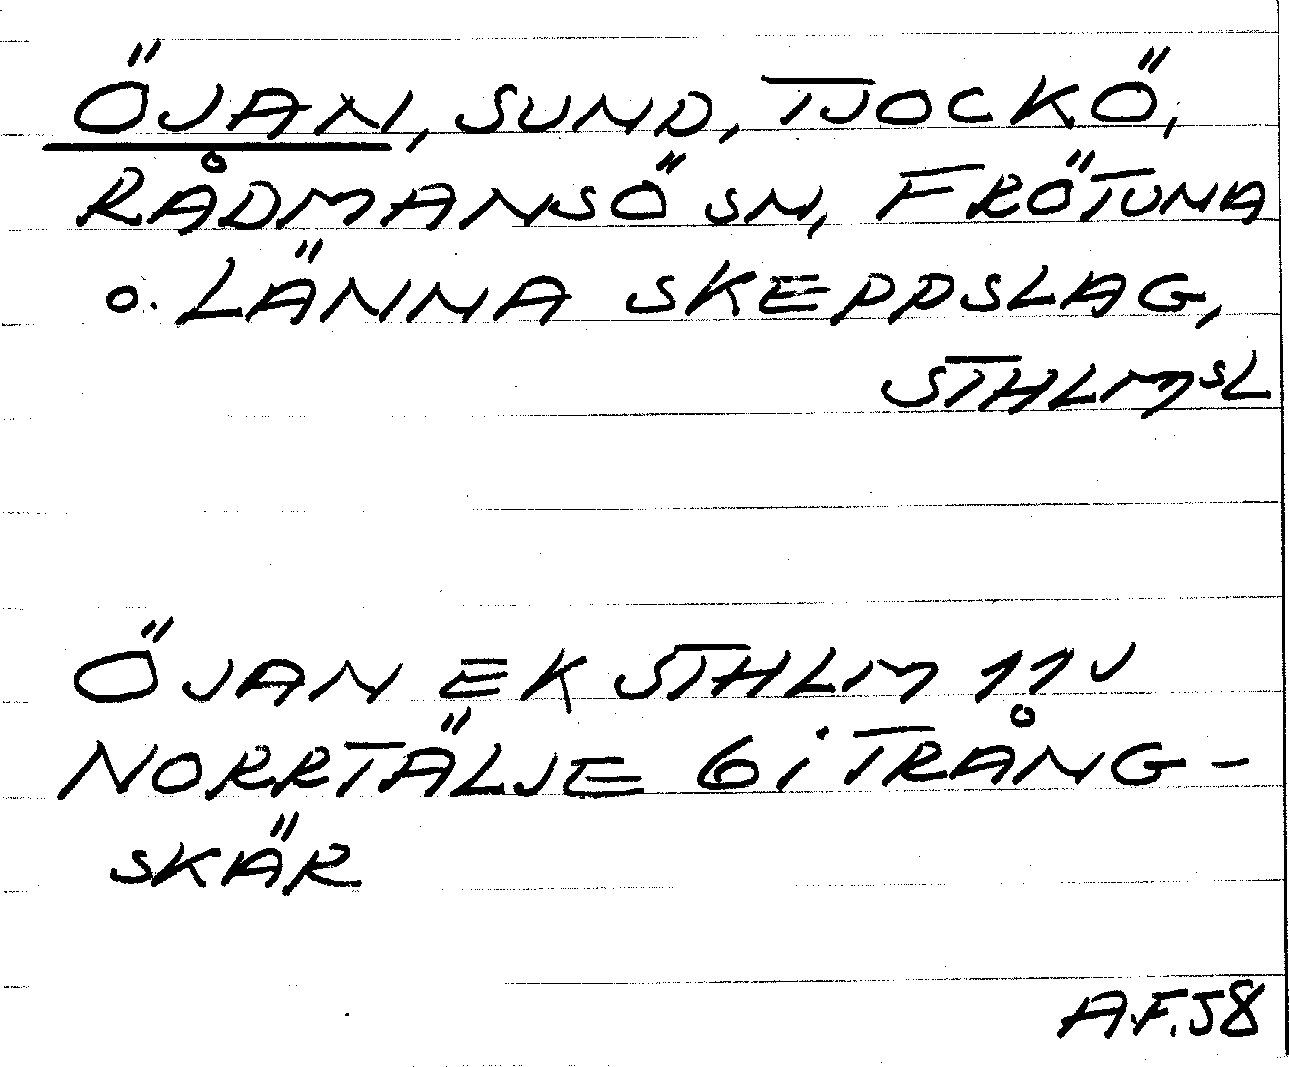 ÖJAN, SUND, TJOCKÖ,
RÅDMANSÖ SN, FRÖTUNA
o. LÄNNA SKEPPSLAG,
STHLMSL
ÖJAN EK STHLM 11V
NORRTÄLJE 6i TRÅNG-
SKÄR
A.F. 58